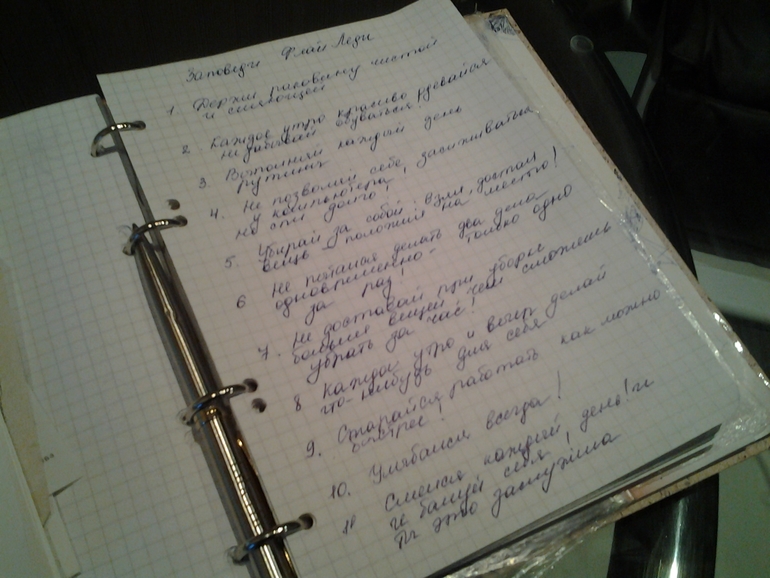 Заповеди Флай Леди
1. Держи раковину чистой
и сияющей
2. Каждое утро красиво одевайся
не забывай обуваться
3. Выполняй каждый день
рутины
4. Не позволяй себе засиживаться
у компьютера,
не спи долго!
5. Убирай за собой: взял, достал
вещь - положил на место!
6 Не пытайся делать два дела
одновременно - только одно
за раз!
7. Не доставай при уборке
больше вещей чем сможешь
убрать за час!
8 Каждое утро и вечер делай
что-нибудь для себя
9. Старайся работать как можно
быстрее!
10. Улыбайся всегда!
11 Смейся каждый день! и
балуй себя,
ты это заслужила